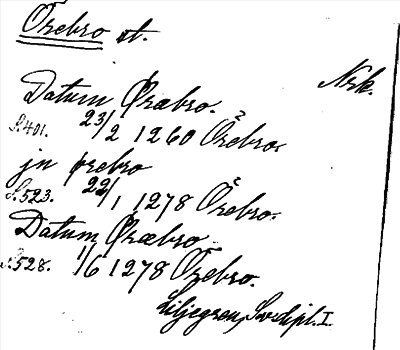 Örebro st.
Nrk.
Datum Øræbro.
S.401. 23/2 1260 Örebro.
jn ørebro
S.523. 22/1 1278 Örebro.
Datum Øræbro
S.528. 1/6 1278 Örebro.
Liljegren, Sv.dipl. I.